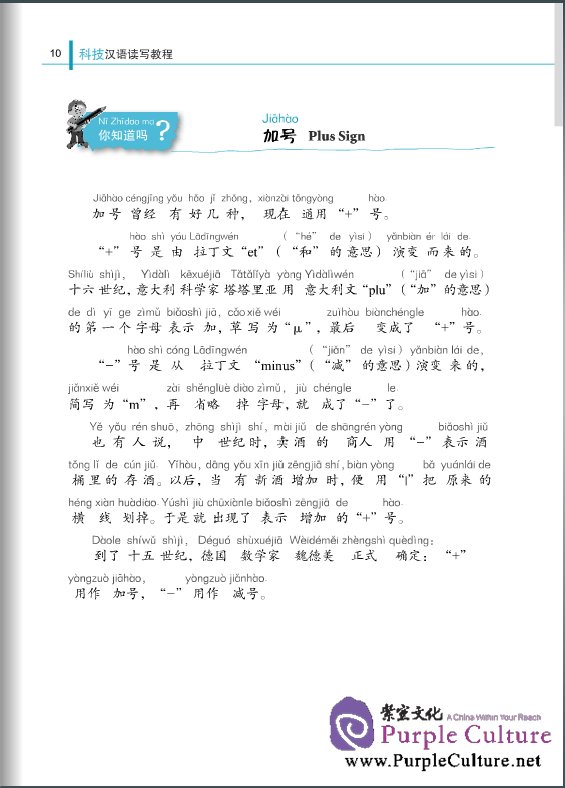 10 科技汉语读写教程
Nǐ Zhīdao ma
你知道吗 ?
Jiāhào
加号 Plus Sign
Jiāhào céngjīng yǒu hǎo jǐ zhǒng, xiànzài tōngyòng hào
加号 曾经 有 好 几 种， 现在 通用 “+” 号。
hào shì yóu Lādīngwén (“hé” de yìsi) yǎnbiàn ér lái de
“+” 号 是 由 拉丁文 “et” (“和” 的 意思) 演变 而 来 的。
Shíliù shìjì, Yìdàlì kēxuéjiā Tǎtǎlǐyà yòng Yìdàlìwén (“jiā” de yìsi)
十六 世纪，意大利 科学家 塔塔里亚 用 意大利文 “plu” (“加” 的意思)
de dì yī ge zìmǔ biǎoshì jiā, cǎo xiě wéi zuìhòu biànchéngle hào.
的 第 一 个 字母 表示 加，草 写 为 “μ”，最后 变成了 “+” 号。
hào shì cóng Lādīngwén (“jiǎn” de yìsi) yǎnbiàn lái de,
“－” 号 是 从 拉丁文 “minus” (“减” 的意思) 演变 来 的，
jiǎnxiě wéi zài shěnglüè diào zìmǔ, jiù chéngle le.
简写 为 “m”，再 省略 掉 字母，就 成了 “－” 了。
Yě yǒu rén shuō, zhōng shìjì shí, mài jiǔ de shāngrén yòng biǎoshì jiǔ
也 有 人 说， 中 世纪 时，卖 酒 的 商人 用 “－” 表示 酒
tǒng lǐ de cún jiǔ. Yǐhòu, dāng yǒu xīn jiǔ zēngjiā shí, biàn yòng bǎ yuánlái de
桶 里 的 存 酒。以后，当 有 新 酒 增加 时，便 用 “|” 把 原来 的
héng xiàn huàdiào. Yúshì jiù chūxiànle biǎoshì zēngjiā de hào.
横 线 划掉。于是 就 出现了 表示 增加 的 “+” 号。
Dàole shíwǔ shìjì, Déguó shùxuéjiā Wèidéměi zhèngshì quèdìng:
到了 十五 世纪，德国 数学家 魏德美 正式 确定： “+”
yòngzuò jiāhào, yòngzuò jiǎnhào.
用作 加号，“－” 用作 减号。
紫宣文化 A China Within Your Reach
Purple Culture
www.PurpleCulture.net